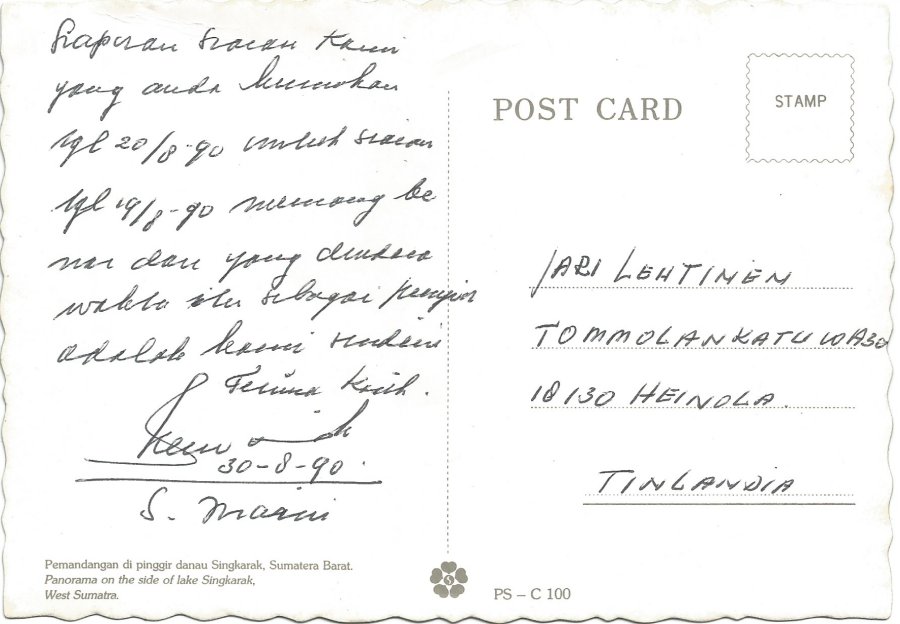 Siaran siaran Kami
yang anda kirimkan
tgl 20/8-90 untuk siaran
tgl 19/8-90 memang be
nar dan yang
waktu itu sebagai penyiar
adalah kami sendiri
Terima Kasih.
30-8-90.
S.
Pemandangan di pinggir danau Singkarak, Sumatera Barat.
Panorama on the side of lake Singkarak,
West Sumatra.
POST CARD
STAMP
JARI LEHTINEN
TOMMOLANKATU 10A30
18130 HEINOLA.
TINLANDIA
PS – C 100